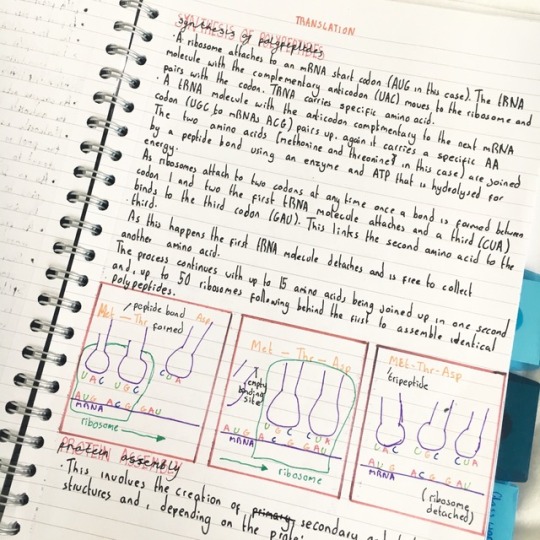 TRANSLATION
SYNTHESIS OF POLYPEPTIDES
synthesis of polypeptides
· A ribosome attaches to an mRNA start codon (AUG in this case). The tRNA
molecule with the complementary anticodon (UAC) moves to the ribosome and
pairs with the codon. TRNA carries specific amino acid.
· A tRNA molecule with the anticodon complimentary to the next mRNA
codon (UGC to mRNAs ACG) pairs up. again it carries a specific AA
The two amino acids [methonine and threonine] in this case) are joined
by a peptide bond using an enzyme and ATP that is hydrolysed for
energy.
As ribosomes attach to two codons at any time once a bond is formed between
codon 1 and two the first tRNA molecule attaches and a third (CUA)
binds to the third codon (GAU). This links the second amino acid to the
third.
As this happens the first tRNA molecule detaches and is free to collect
another amino acid.
The process continues with up to 15 amino acids being joined up in one second
and, up to 50 ribosomes following behind the first to assemble identical
polypeptides.
peptide bond
formed
Met — Thr
Asp
UAC UGC CUA
AUG ACG GAU
mRNA
ribosome
Met — Thr — Asp
empty
bonding
site
UGC CUA
AUG ACG GAU
mRNA
ribosome
Met-Thr-Asp
tripeptide
UAC UGC CUA
AUG ACG GAU
mRNA
(ribosome
detached)
PROTEIN ASSEMBLY
Protein assembly
· This involves the creation of primary secondary
structures and, depending on the